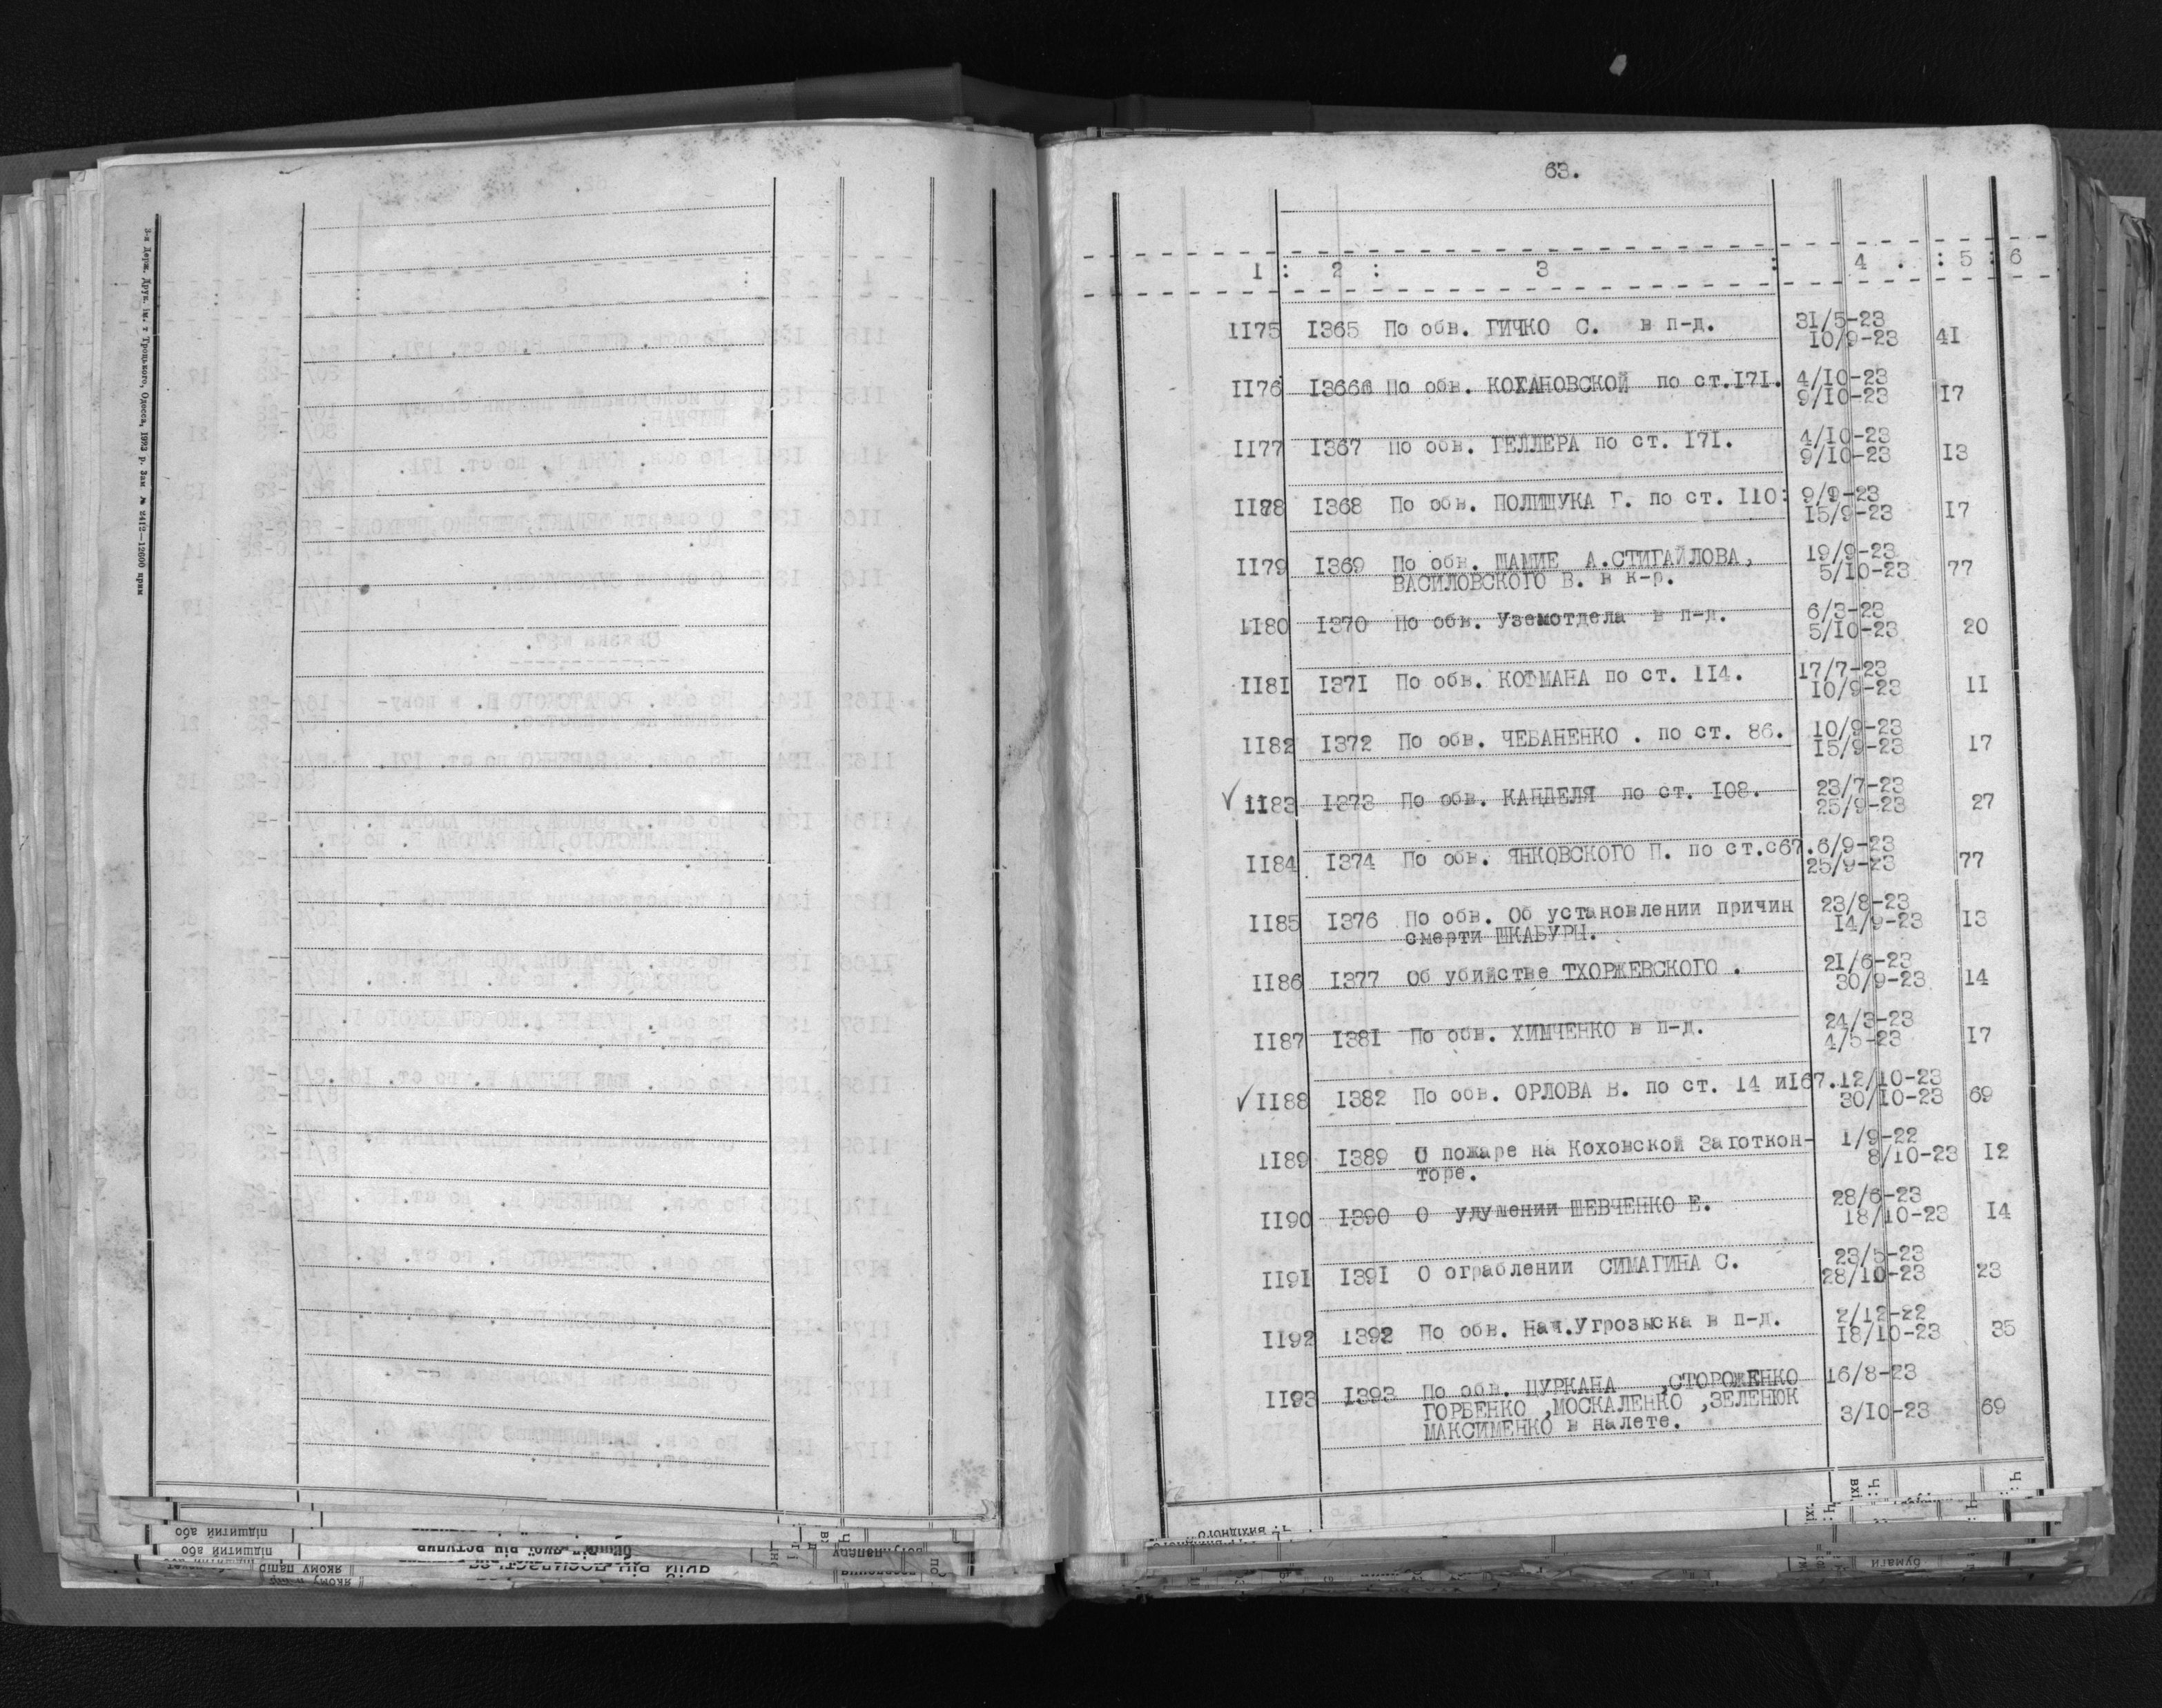 3-я Держ. Друк. ім. т Троцького, Одесса, 1923 р. Зам № 2412—12000 прим
63.
1 : 2 : 3 : 4 . : 5 : 6
1175 1365 По обв. ГИЧКО С. в п-д. 31/5-23
10/9-23 41
1176 1366а По обв. КОХАНОВСКОЙ по ст.171. 4/10-23
9/10-23 17
1177 1367 По обв. ГЕЛЛЕРА по ст. 171. 4/10-23
9/10-23 13
1178 1368 По обв. ПОЛИЩУКА Г. по ст. 110: 9/9-23
15/9-23 17
1179 1369 По обв. ШАМИЕ А.СТИГАЙЛОВА, 19/9-23
ВАСИЛОВСКОГО В. в к-р. 5/10-23 77
1180 1370 По обв. Уземотдела в п-д. 6/3-23
5/10-23 20
1181 1371 По обв. КОФМАНА по ст. 114. 17/7-23
10/9-23 11
1182 1372 По обв. ЧЕБАНЕНКО . по ст. 86. 10/9-23
15/9-23 17
✓ 1183 1373 По обв. КАНДЕЛЯ по ст. 108. 23/7-23
25/9-23 27
1184 1374 По обв. ЯНКОВСКОГО П. по ст.с67. 6/9-23
25/9-23 77
1185 1376 По обв. Об установлении причин 23/8-23
смерти ШКАБУРЫ. 14/9-23 13
1186 1377 Об убийстве ТХОРЖЕВСКОГО . 21/6-23
30/9-23 14
1187 1381 По обв. ХИМЧЕНКО в п-д. 24/3-23
4/5-23 17
✓ 1188 1382 По обв. ОРЛОВА В. по ст. 14 и167. 12/10-23
30/10-23 69
1189 1389 О пожаре на Коховской Заготкон- 1/9-22
торе. 8/10-23 12
1190 1390 О удушении ШЕВЧЕНКО Е. 28/6-23
18/10-23 14
1191 1391 О ограблении СИМАГИНА С. 23/5-23
28/10-23 23
1192 1392 По обв. Нач.Угрозыска в п-д. 2/12-22
18/10-23 35
1193 1393 По обв. ЦУРКАНА ,СТОРОЖЕНКО 16/8-23
ГОРБЕНКО ,МОСКАЛЕНКО ,ЗЕЛЕНЮК 3/10-23 69
МАКСИМЕНКО в налете.
підшитий або
підшитий або
якому папір
бумаги